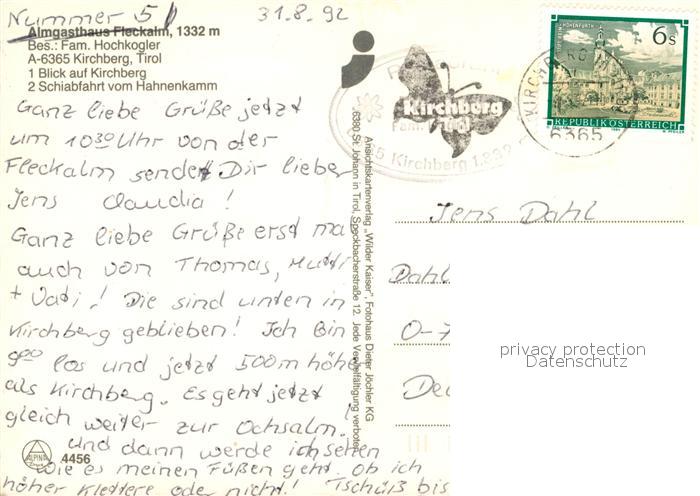 Nummer 5
31.8.92
Almgasthaus Fleckalm, 1332 m
Bes.: Fam. Hochkogler
A-6365 Kirchberg, Tirol
1 Blick auf Kirchberg
2 Schiabfahrt vom Hahnenkamm
Ganz liebe Grüße jetzt
um 10³⁰ Uhr von der
Fleckalm sendet Dir lieber
Jens Claudia!
Ganz liebe Grüße erst mal
auch von Thomas, Mutti
+ Vati! Die sind unten in
Kirchberg geblieben! Ich bin
9⁰⁰ los und jetzt 500m höher
als Kirchberg. Es geht jetzt
gleich weiter zur Ochsalm!
und dann werde ich sehen
wie es meinen Füßen geht, ob ich
höher klettere oder nicht! Tschüß bis
ALPINA
4456
Ansichtskartenverlag „Wilder Kaiser", Fotohaus Dieter Jöchler KG
6380 St. Johann in Tirol, Speckbacherstraße 12. Jede Vervielfältigung verboten!
Kirchberg
Tirol
Kirchberg 1.332
6365
6 s
REPUBLIK ÖSTERREICH
Jens Dahl
Dahl
O-7
De
privacy protection
Datenschutz